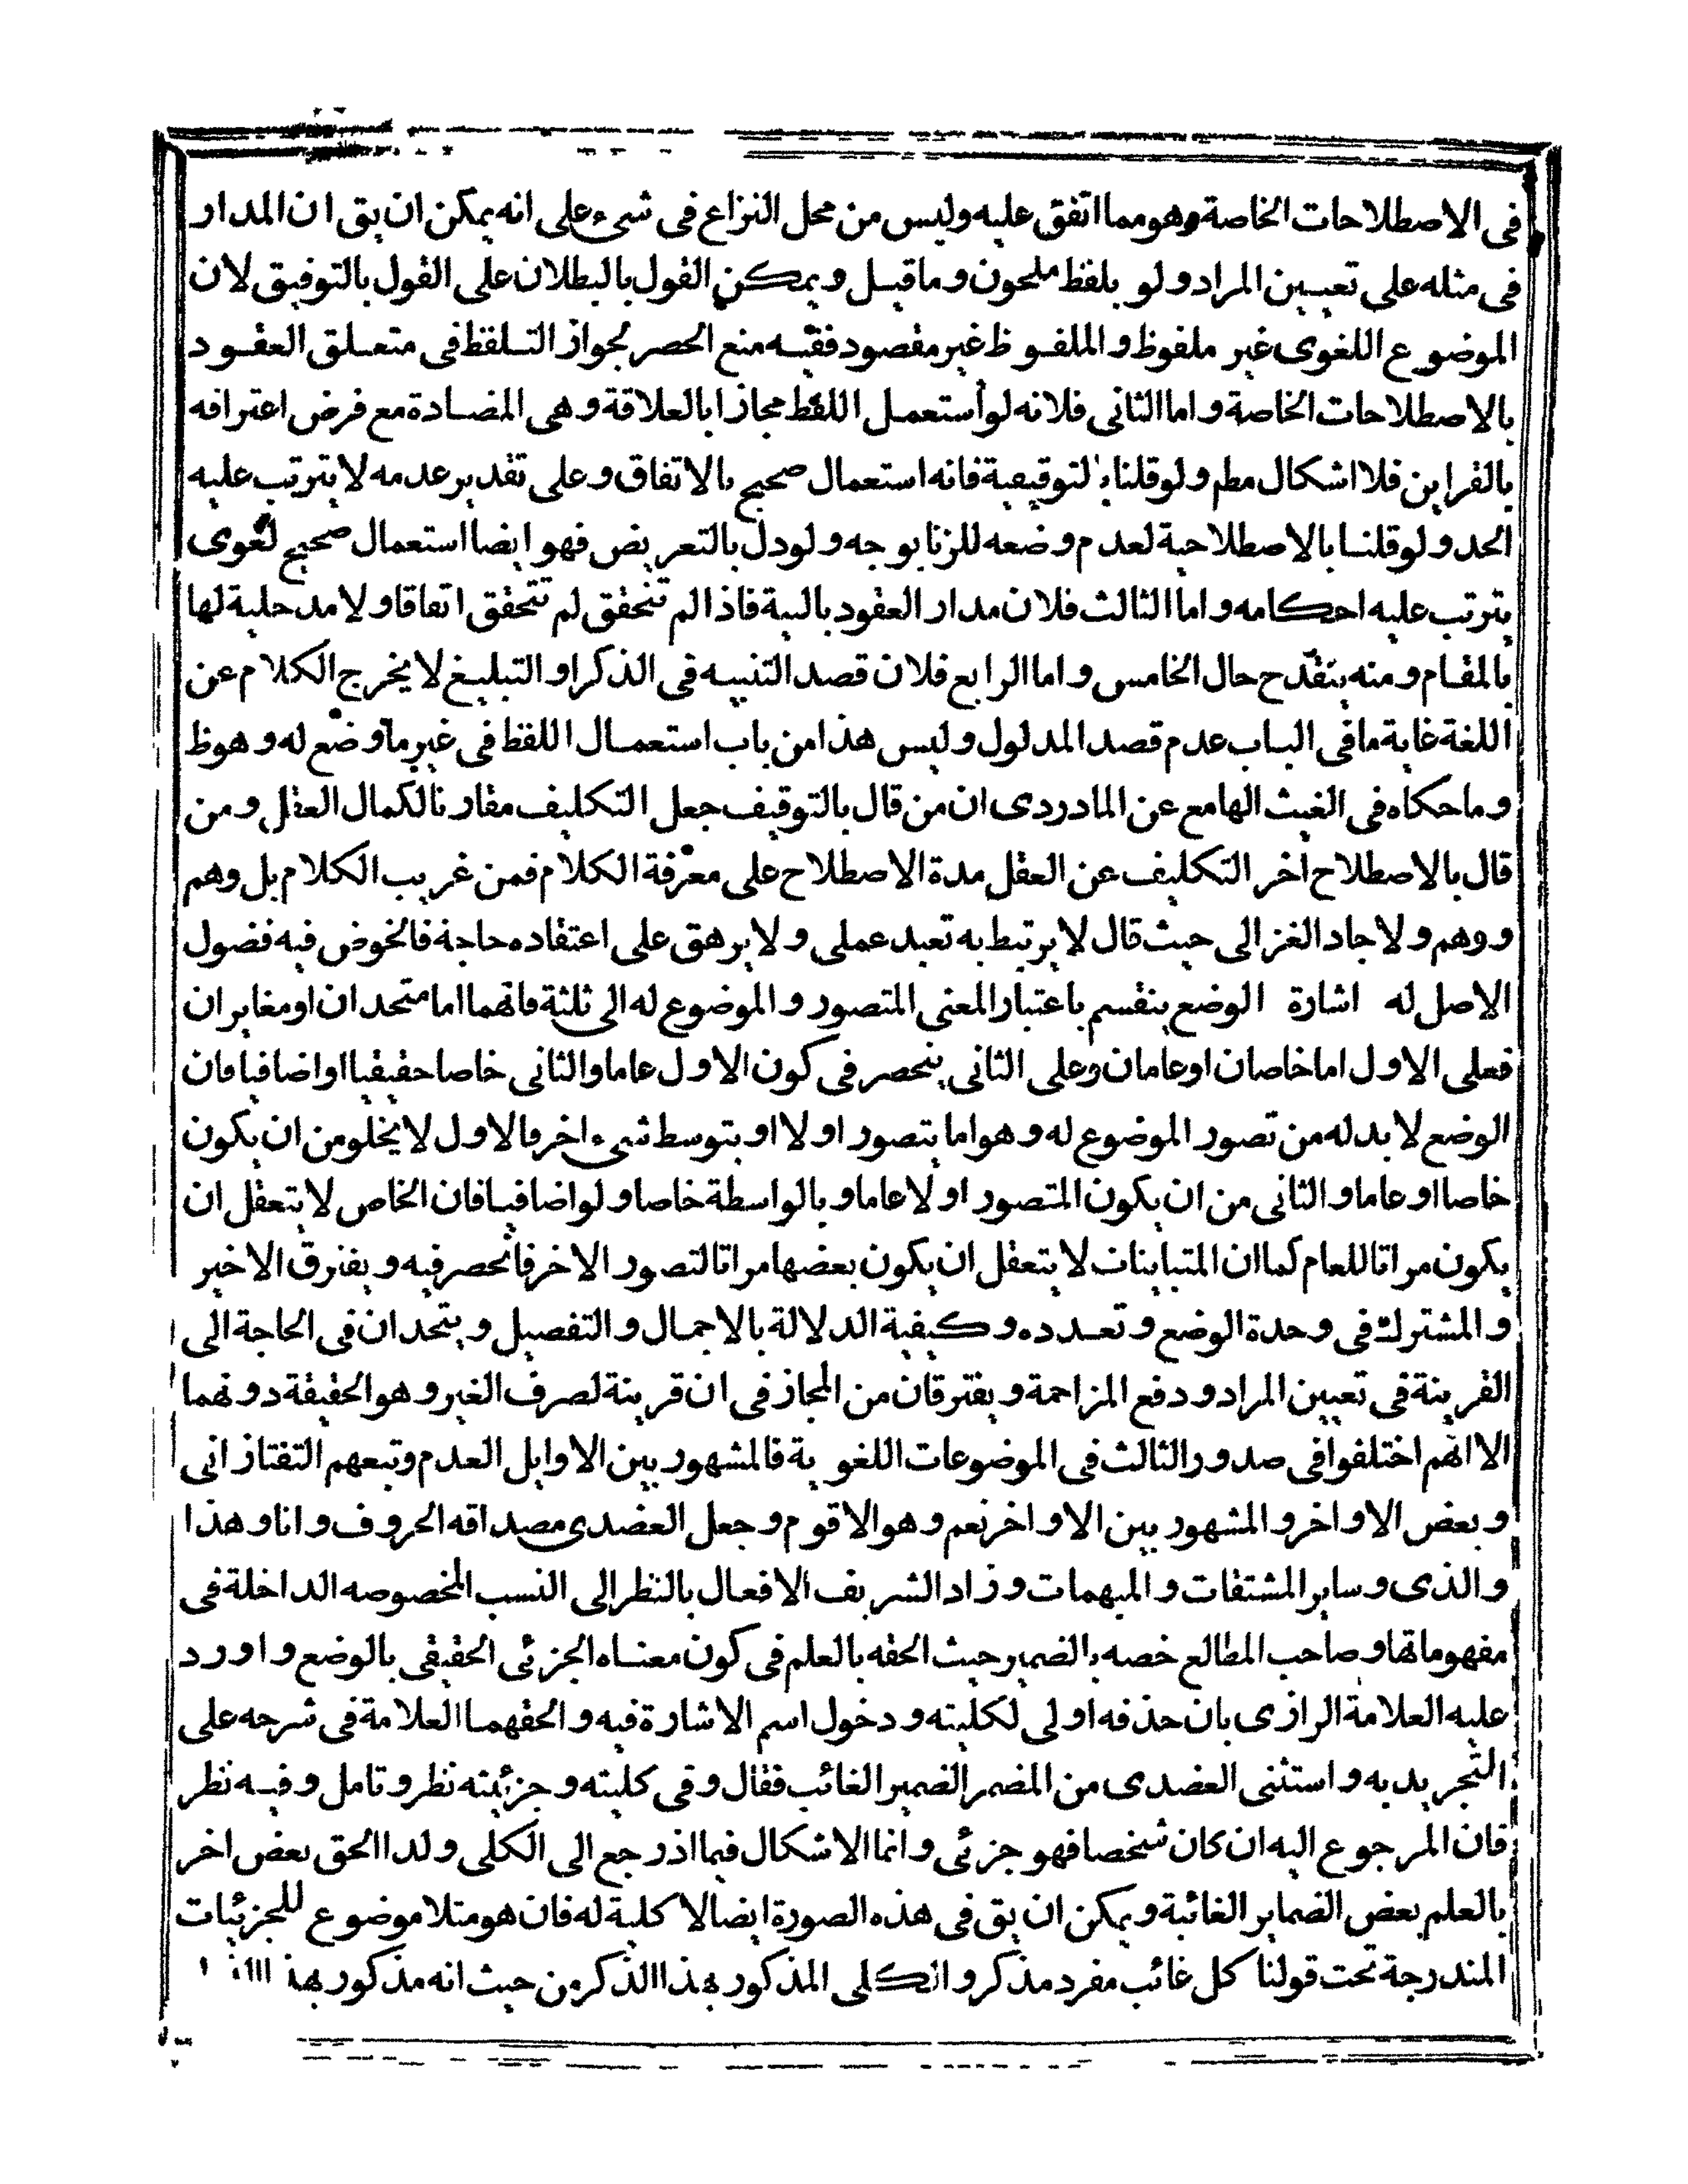 فى الاصطلاحات الخاصة وهو مما اتفق عليه وليس من محل النزاع فى شىء على انه يمكن ان يق ان المدار
فى مثله على تعيين المراد ولو بلفظ ملحون وما قيل ويمكن القول بالبطلان على القول بالتوفيق لان
الموضوع اللغوى غير ملفوظ والملفوظ غير مقصود ففيه منع الحصر لجواز التلفظ فى متعلق العقود
بالاصطلاحات الخاصة واما الثانى فلانه لو أستعمل اللفظ مجازا بالعلاقة وهى المضادة مع فرض اعترافه
بالقراين فلا اشكال مطم ولو قلنا بالتوقيفية فانه استعمال صحيح بالاتفاق وعلى تقدير عدمه لا يترتب عليه
الحد ولو قلنا بالاصطلاحية لعدم وضعه للزنا بوجه ولو دل بالتعريض فهو ايضا استعمال صحيح لغوى
يترتب عليه احكامه واما الثالث فلان مدار العقود بالنية فاذا لم تتحقق لم تتحقق اتفاقا ولا مدخلية لها
بالمقام ومنه ينقدح حال الخامس واما الرابع فلان قصد التنبيه فى الذكر او التبليغ لا يخرج الكلام عن
اللغة غاية ما فى الباب عدم قصد المدلول وليس هذا من باب استعمال اللفظ فى غير ما وضع له وهو ظ
وما حكاه فى الغيث الهامع عن المادردى ان من قال بالتوقيف جعل التكليف مقارنا لكمال العقل ومن
قال بالاصطلاح اخر التكليف عن العقل مدة الاصطلاح على معرفة الكلام فمن غريب الكلام بل وهم
ووهم ولا جاد الغزالى حيث قال لا يرتبط به تعبد عملى ولا يرهق على اعتقاده حاجة فالخوض فيه فضول
الاصل له اشارة الوضع ينقسم باعتبار المعنى المتصور والموضوع له الى ثلثة فانهما اما متحدان او مغايران
فعلى الاول اما خاصان او عامان وعلى الثانى ينحصر فى كون الاول عاما والثانى خاصا حقيقيا او اضافيا فان
الوضع لا بد له من تصور الموضوع له وهو اما يتصور اولا او بتوسط شىء اخر فالاول لا يخلو من ان يكون
خاصا او عاما والثانى من ان يكون المتصور اولا عاما وبالواسطة خاصا ولو اضافيا فان الخاص لا يتعقل ان
يكون مراتا للعام كما ان المتباينات لا يتعقل ان يكون بعضها مراتا لتصور الاخر فانحصر فيه ويفترق الاخير
والمشترك فى وحدة الوضع وتعدده وكيفية الدلالة بالاجمال والتفصيل ويتحدان فى الحاجة الى
القرينة فى تعيين المراد ودفع المزاحمة ويفترقان من المجاز فى ان قرينة لصرف الغير وهو الحقيقة دونهما
الا انهم اختلفوا فى صدور الثالث فى الموضوعات اللغوية فالمشهور بين الاوايل العدم وتبعهم التفتازانى
وبعض الاواخر والمشهور بين الاواخر نعم وهو الاقوم وجعل العضدى مصداقه الحروف وانا وهذا
والذى وساير المشتقات والمبهمات وزاد الشريف الافعال بالنظر الى النسب المخصوصه الداخلة فى
مفهوماتها وصاحب المطالع خصه بالضمير حيث الحقه بالعلم فى كون معناه الجزئى الحقيقى بالوضع واورد
عليه العلامة الرازى بان حذفه اولى لكليته ودخول اسم الاشارة فيه والحقهما العلامة فى شرحه على
التجريد به واستثنى العضدى من المضمر الضمير الغائب فقال وفى كليته وجزئيته نظر وتامل وفيه نظر
فان المرجوع اليه ان كان شخصا فهو جزئى وانما الاشكال فيما اذ رجع الى الكلى ولدا الحق بعض اخر
بالعلم بعض الضماير الغائبة ويمكن ان يق فى هذه الصورة ايضا لا كلية له فان هو مثلا موضوع للجزئيات
المندرجة تحت قولنا كل غائب مفرد مذكر والكلى المذكور بهذا الذكر من حيث انه مذكور بهذا